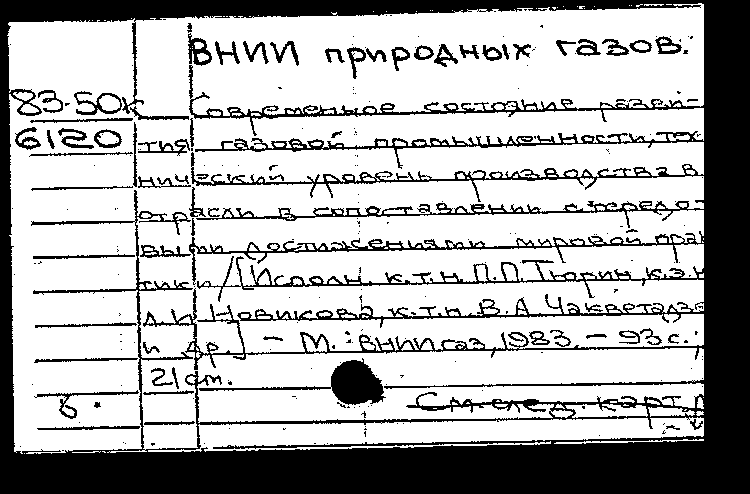 ВНИИ природных газов.
83-50к Современное состояние разви-
6120 тия газовой промышленности, тех
нический уровень производства в
отрасли в сопоставлении с передо
выми достижениями мировой прак
тики / [Исполн. к.т.н. П.П.Тюрин, к.э.н
Л.И Новикова, к.т.н. В.А Чакветадзе
и др.] - М.: ВНИИгаз, 1983. - 93 с.;
21 см.
б. См. след. карт.